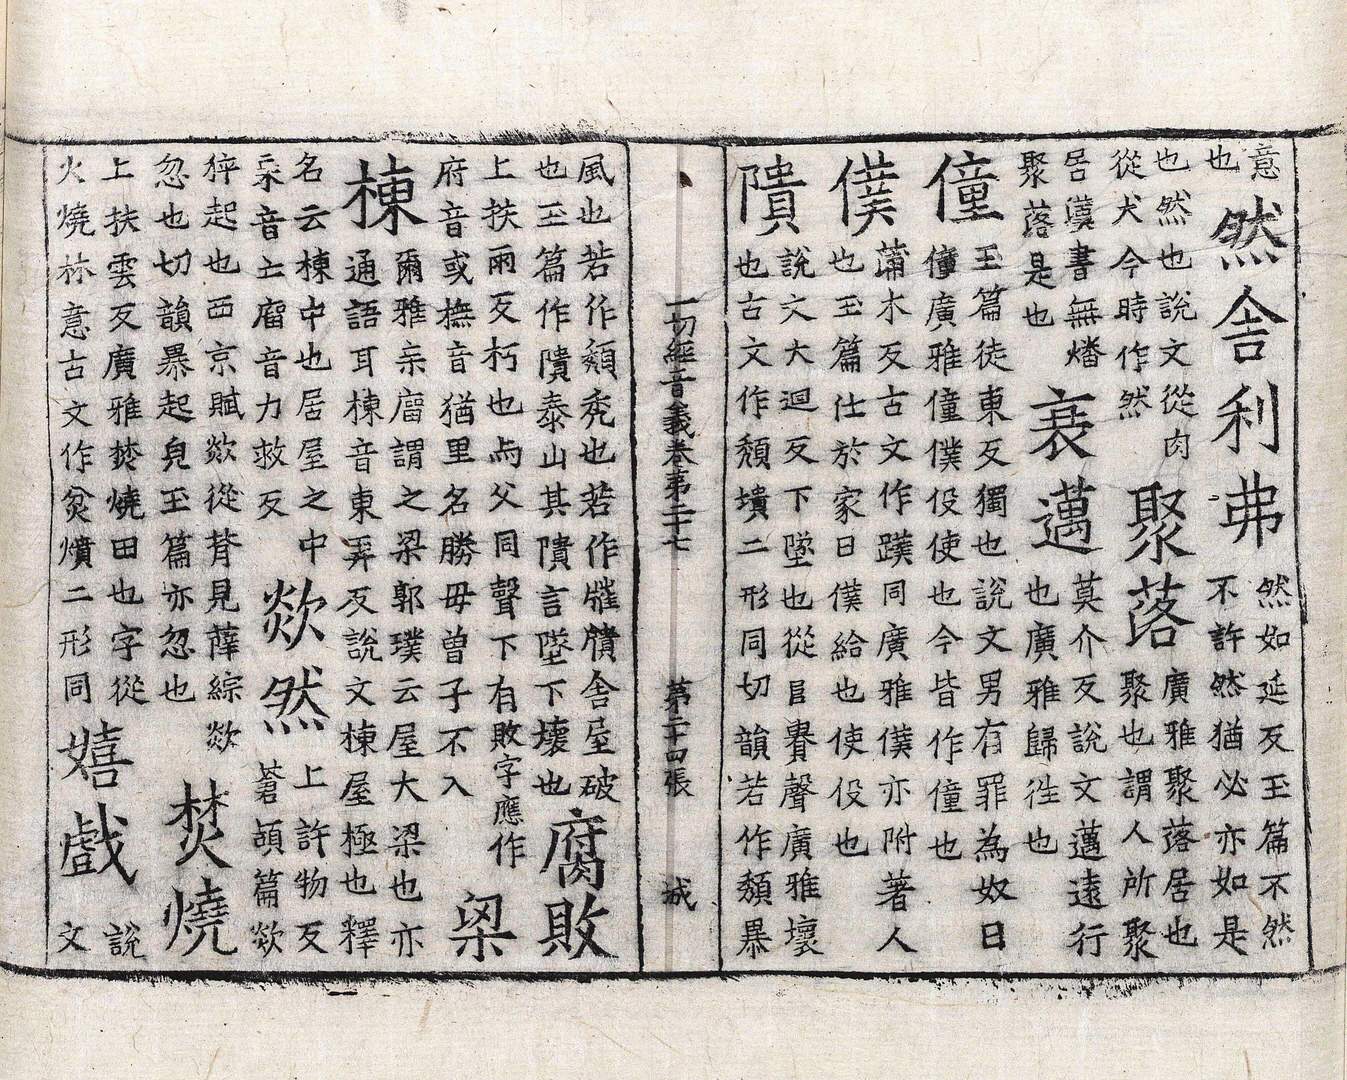 意
也
然舍利弗
然如延反玉篇不然
不許然猶必亦如是
也然也說文從肉
從犬今時作然
聚落
廣雅聚落居也
聚也謂人所聚
居漢書無燔
聚落是也
衰邁
莫介反說文邁遠行
也廣雅歸徃也
僮
王篇徒東反獨也說文男有罪為奴曰
僮廣雅僮僕役使也今皆作僮也
僕
蒲木反古文作同廣雅僕亦附著人
也玉篇仕於家曰僕給也使役也
隤
說文大迴反下墜也從聲廣雅壞
也古文作頹墤二形同切韻若作頹暴
一切經音義卷第二十七 第二十四張 城
風也若作頹禿也若作舍屋破
也玉篇作隤泰山其隤言墜下壞也
腐敗
上扶雨反朽也与父同聲下有敗字應作
府音或撫音猶里名勝毋曾子不入
梁
棟
爾雅亲廇謂之梁郭璞云屋大梁也亦
通語耳棟音東弄反說文棟屋極也釋
名云棟中也居屋之中
亲音亡廇音力救反
欻然
上許物反
蒼頡篇欻
猝起也西京賦欻從背見薛綜欻
忽也切韻暴起皃玉篇亦忽也
焚燒
上扶雲反廣雅焚燒田也字從
火燒林意古文作炃燌二形同
嬉戲
說
文